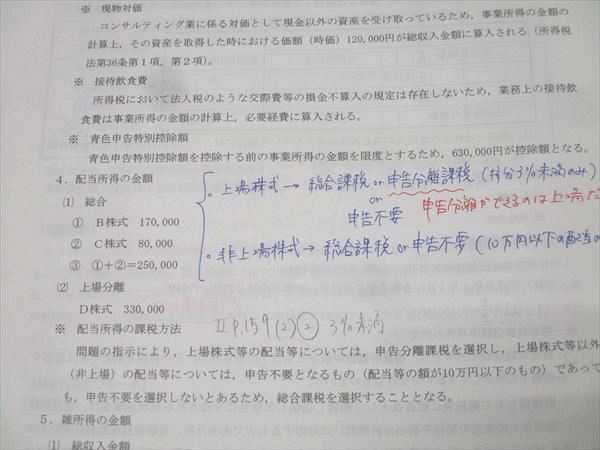 ※ 現物対価
コンサルティング業に係る対価として現金以外の資産を受け取っているため，事業所得の金額の
計算上，その資産を取得した時における価額（時価）120,000円が総収入金額に算入される（所得税
法第36条第１項，第２項）。
※ 接待飲食費
所得税において法人税のような交際費等の損金不算入の規定は存在しないため，業務上の接待飲
食費は事業所得の金額の計算上，必要経費に算入される。
※ 青色申告特別控除額
青色申告特別控除額を控除する前の事業所得の金額を限度とするため，630,000円が控除額となる。
４．配当所得の金額
。上場株式→総合課税 or 申告分離課税（持分3%未満のみ）
⑴ 総合
or
申告不要
申告分離ができるのは上場だ
① Ｂ株式 170,000
② Ｃ株式 80,000
。非上場株式→総合課税 or 申告不要（10万円以下の配当の
③ ①＋②＝250,000
⑵ 上場分離
Ｄ株式 330,000
Ⅱ P.159 (2)② 3%未満
※ 配当所得の課税方法
問題の指示により，上場株式等の配当等については，申告分離課税を選択し，上場株式等以外
（非上場）の配当等については，申告不要となるもの（配当等の額が10万円以下のもの）であって
も，申告不要を選択しないとあるため，総合課税を選択することとなる。
５．雑所得の金額
⑴ 総収入金額